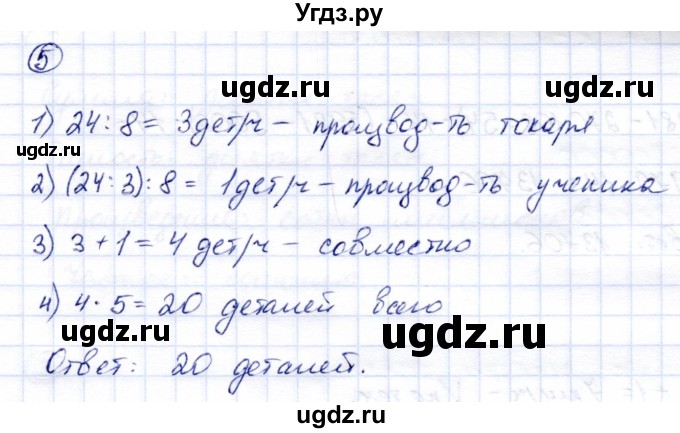 Угдз.ру
5
ugdz.ru ugdz.ru
1) 24 : 8 = 3 дет/ч – произвед-ть токаря
ugdz.ru
2) (24 : 3) : 8 = 1 дет/ч – производ-ть ученика
ugdz.ru
3) 3 + 1 = 4 дет/ч – совместно
4) 4 · 5 = 20 деталей всего
ugdz.ru ugdz.ru
Ответ: 20 деталей.
ugdz.ru